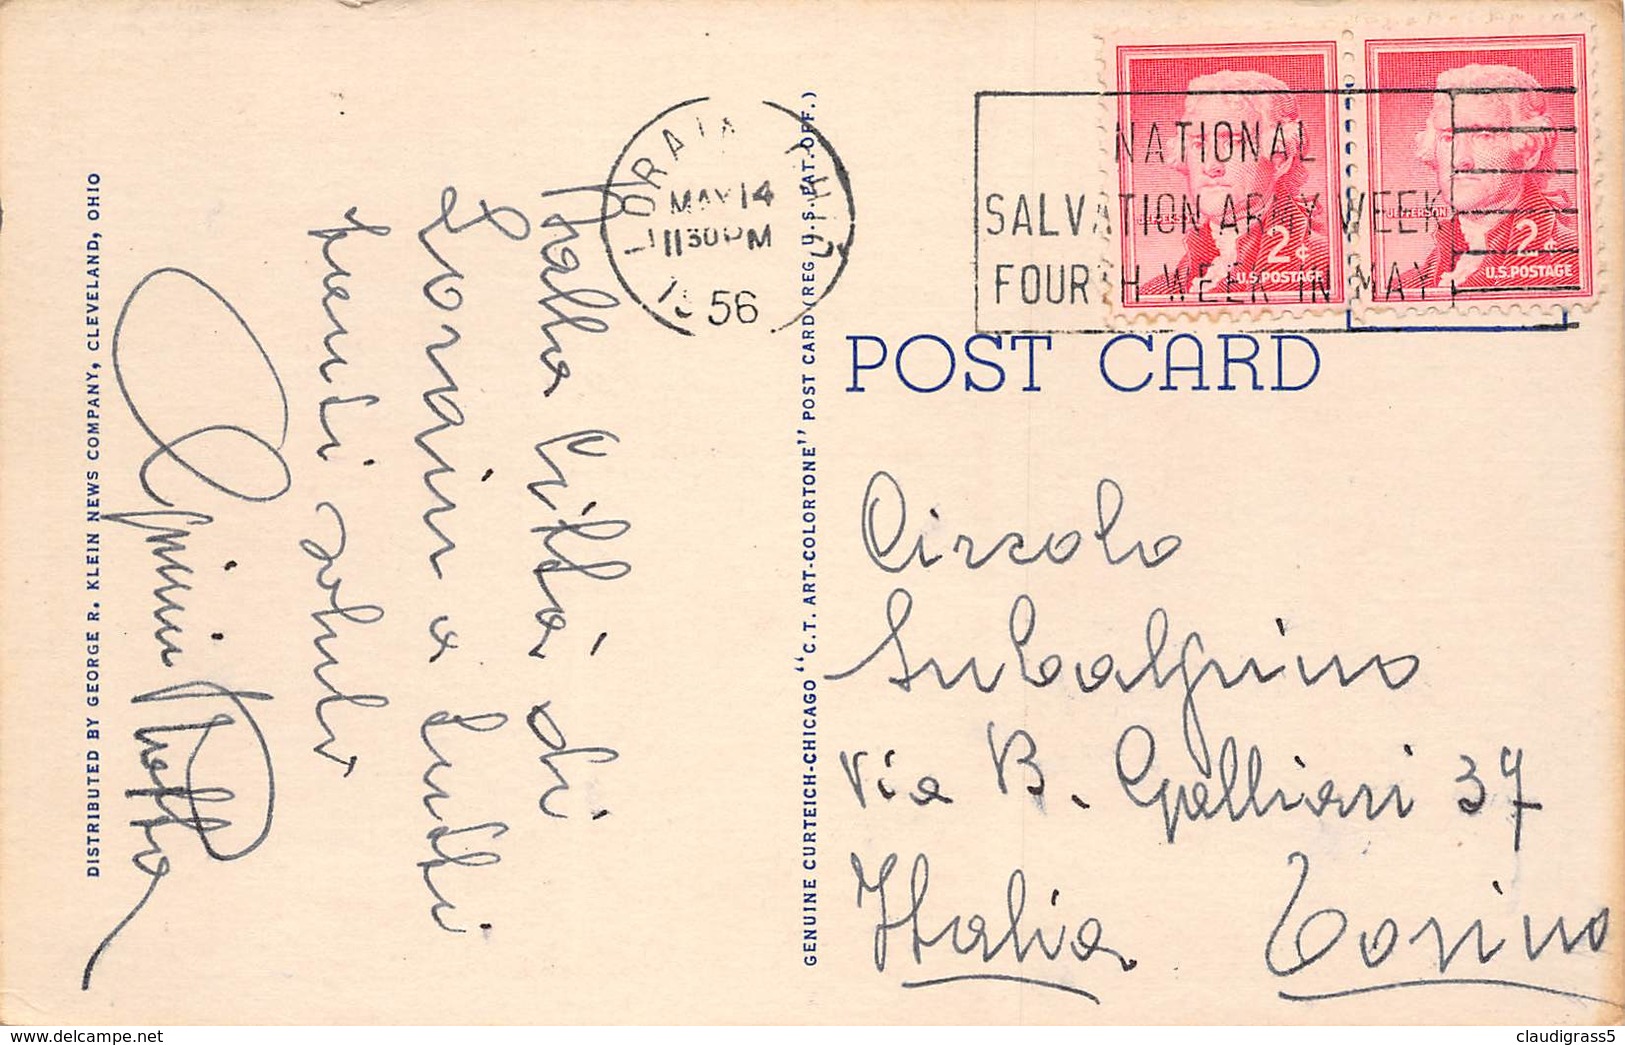 DISTRIBUTED BY GEORGE R. KLEIN NEWS COMPANY, CLEVELAND, OHIO
Dalla Città di
Lorain a tutti
tanti saluti
GENUINE CURTEICH-CHICAGO "C.T. ART-COLORTONE" POST CARD (REG. U.S. PAT. OFF.)
LORAIN
MAY 14
11 30 PM
1956
NATIONAL
SALVATION ARMY WEEK
FOURTH WEEK IN MAY
JEFFERSON
2¢
U.S. POSTAGE
JEFFERSON
2¢
U.S. POSTAGE
POST CARD
Circolo
Subalpino
Via B. Galliari 37
Italia Torino
claudigrass5